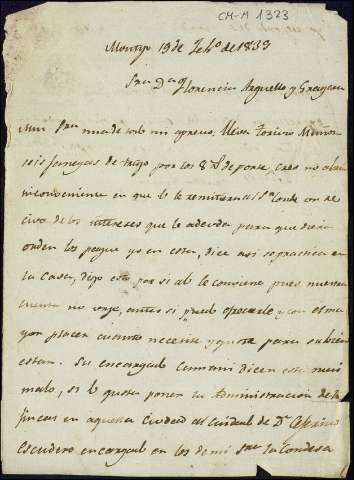 CM-M 1323
Montijo 19 de Feb.o de 1833
Sra Da Florencia Arguello y
Mui Sra mia de todo mi aprecio, lleva Torivio Muñoz
seis fanegas de trigo por los 8 rs de porte, creo no abra
inconveniente en que le remitiera al Sr Conde un re
civo de los intereses que le adeuda para que
onden los pague yo en esta, dice asi se practica en
la Casa, digo esto por si ab le conviene pues nuestra
cuenta no urge, antes si puedo y con el ma
yor placer cuanto necesite y guste para su bien
estar. Su encargado dicen esta mui
malo, si le gusta poner la Administracion de
fincas en aquella Ciudad al cuidado de Dn
Escudero encargado en los de mi Sra la Condesa